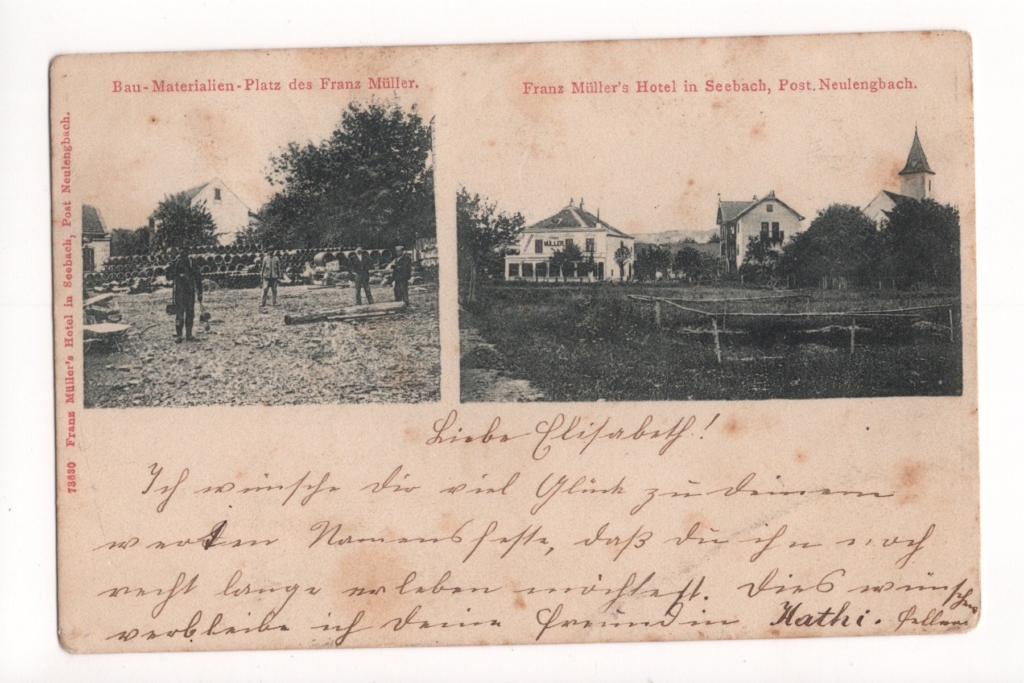 Bau-Materialien-Platz des Franz Müller.
Franz Müller's Hotel in Seebach, Post Neulengbach.
73630 Franz Müller's Hotel in Seebach, Post Neulengbach.
MÜLLER
Liebe Elisabeth!
Ich wünsche dir viel Glück zu deinem
werten Namensfeste, daß du ihn noch
recht lange erleben möchtest. Dies wünschend
verbleibe ich deine Freundin Kathi.